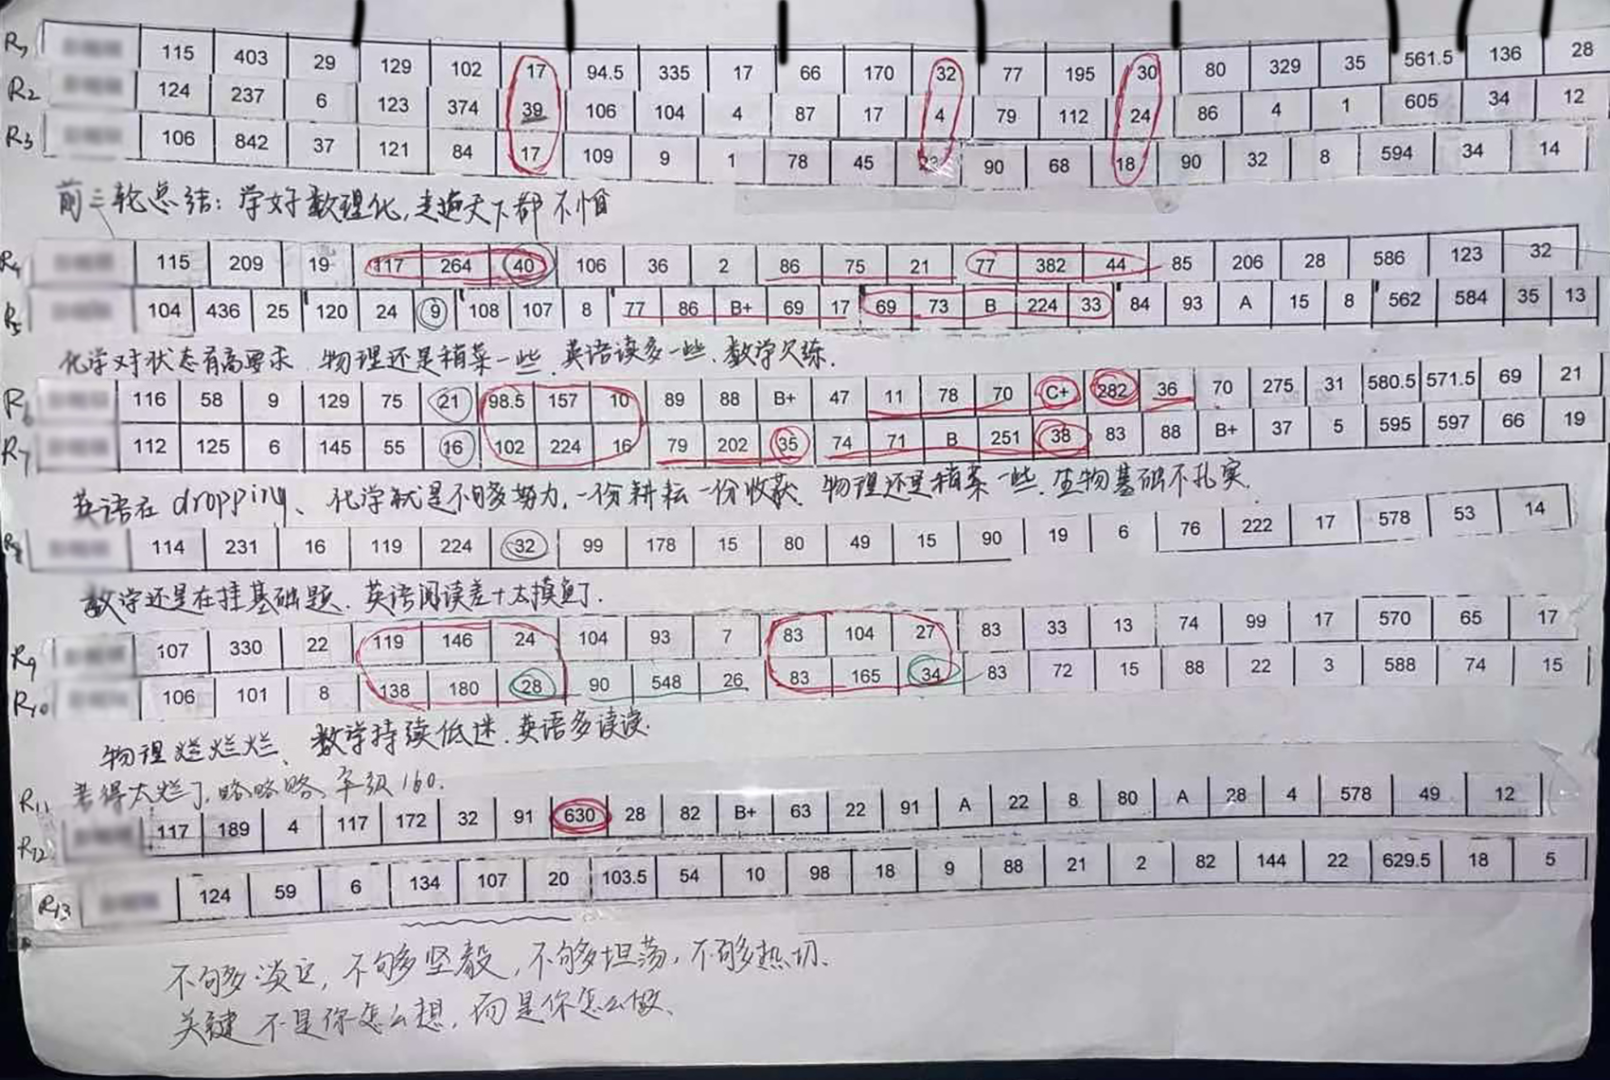 R1 115 403 29 129 102 17 94.5 335 17 66 170 32 77 195 30 80 329 35 561.5 136 28
R2 124 237 6 123 374 39 106 104 4 87 17 4 79 112 24 86 4 1 605 34 12
R3 106 842 37 121 84 17 109 9 1 78 45 90 68 18 90 32 8 594 34 14
前三轮总结：学好数理化，走遍天下都不怕
R4 115 209 19 117 264 40 106 36 2 86 75 21 77 382 44 85 206 28 586 123 32
R5 104 436 25 120 24 9 108 107 8 77 86 B+ 69 17 69 73 B 224 33 84 93 A 15 8 562 584 35 13
化学对状态有高要求、物理还是稍菜一些、英语读多一些、数学欠练．
R6 116 58 9 129 75 21 98.5 157 10 89 88 B+ 47 11 78 70 C+ 282 36 70 275 31 580.5 571.5 69 21
R7 112 125 6 145 55 16 102 224 16 79 202 35 74 71 B 251 38 83 88 B+ 37 5 595 597 66 19
英语在 dropping、化学就是不够努力，一份耕耘一份收获、物理还是稍菜一些、生物基础不扎实．
R8 114 231 16 119 224 32 99 178 15 80 49 15 90 19 6 76 222 17 578 53 14
数学还是在挂基础题、英语阅读差+太摸鱼了．
R9 107 330 22 119 146 24 104 93 7 83 104 27 83 33 13 74 99 17 570 65 17
R10 106 101 8 138 180 28 90 548 26 83 165 34 83 72 15 88 22 3 588 74 15
物理烂烂烂、数学持续低迷、英语多读读．
R11 考得太烂了，略略略、年级160．
R12 117 189 4 117 172 32 91 630 28 82 B+ 63 22 91 A 22 8 80 A 28 4 578 49 12
R13 124 59 6 134 107 20 103.5 54 10 98 18 9 88 21 2 82 144 22 629.5 18 5
不够淡定，不够坚毅，不够坦荡，不够热切．
关键不是你怎么想，而是你怎么做．